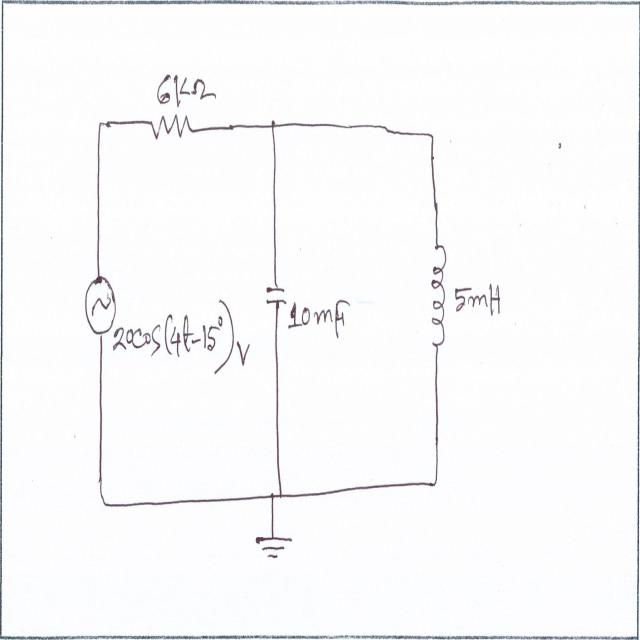 6kΩ
20cos(4t-15°)V
10mF
5mH